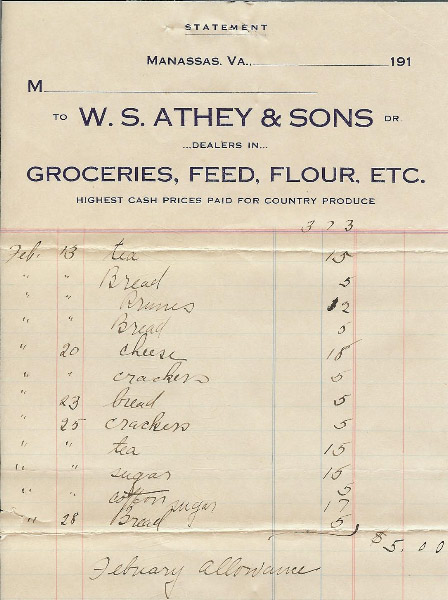 STATEMENT
MANASSAS, VA., 191
M
TO W. S. ATHEY & SONS DR
...DEALERS IN...
GROCERIES, FEED, FLOUR, ETC.
HIGHEST CASH PRICES PAID FOR COUNTRY PRODUCE
373
Feb. 13 tea 15
" " Bread 5
" " Prunes 12
" " Bread 5
" 20 cheese 15
" " crackers 5
" 23 bread 5
" 25 crackers 5
" " tea 15
" " sugar 15
" " cotton 5
sugar 17
" 28 Bread 5
$5.00
Febuary allowance